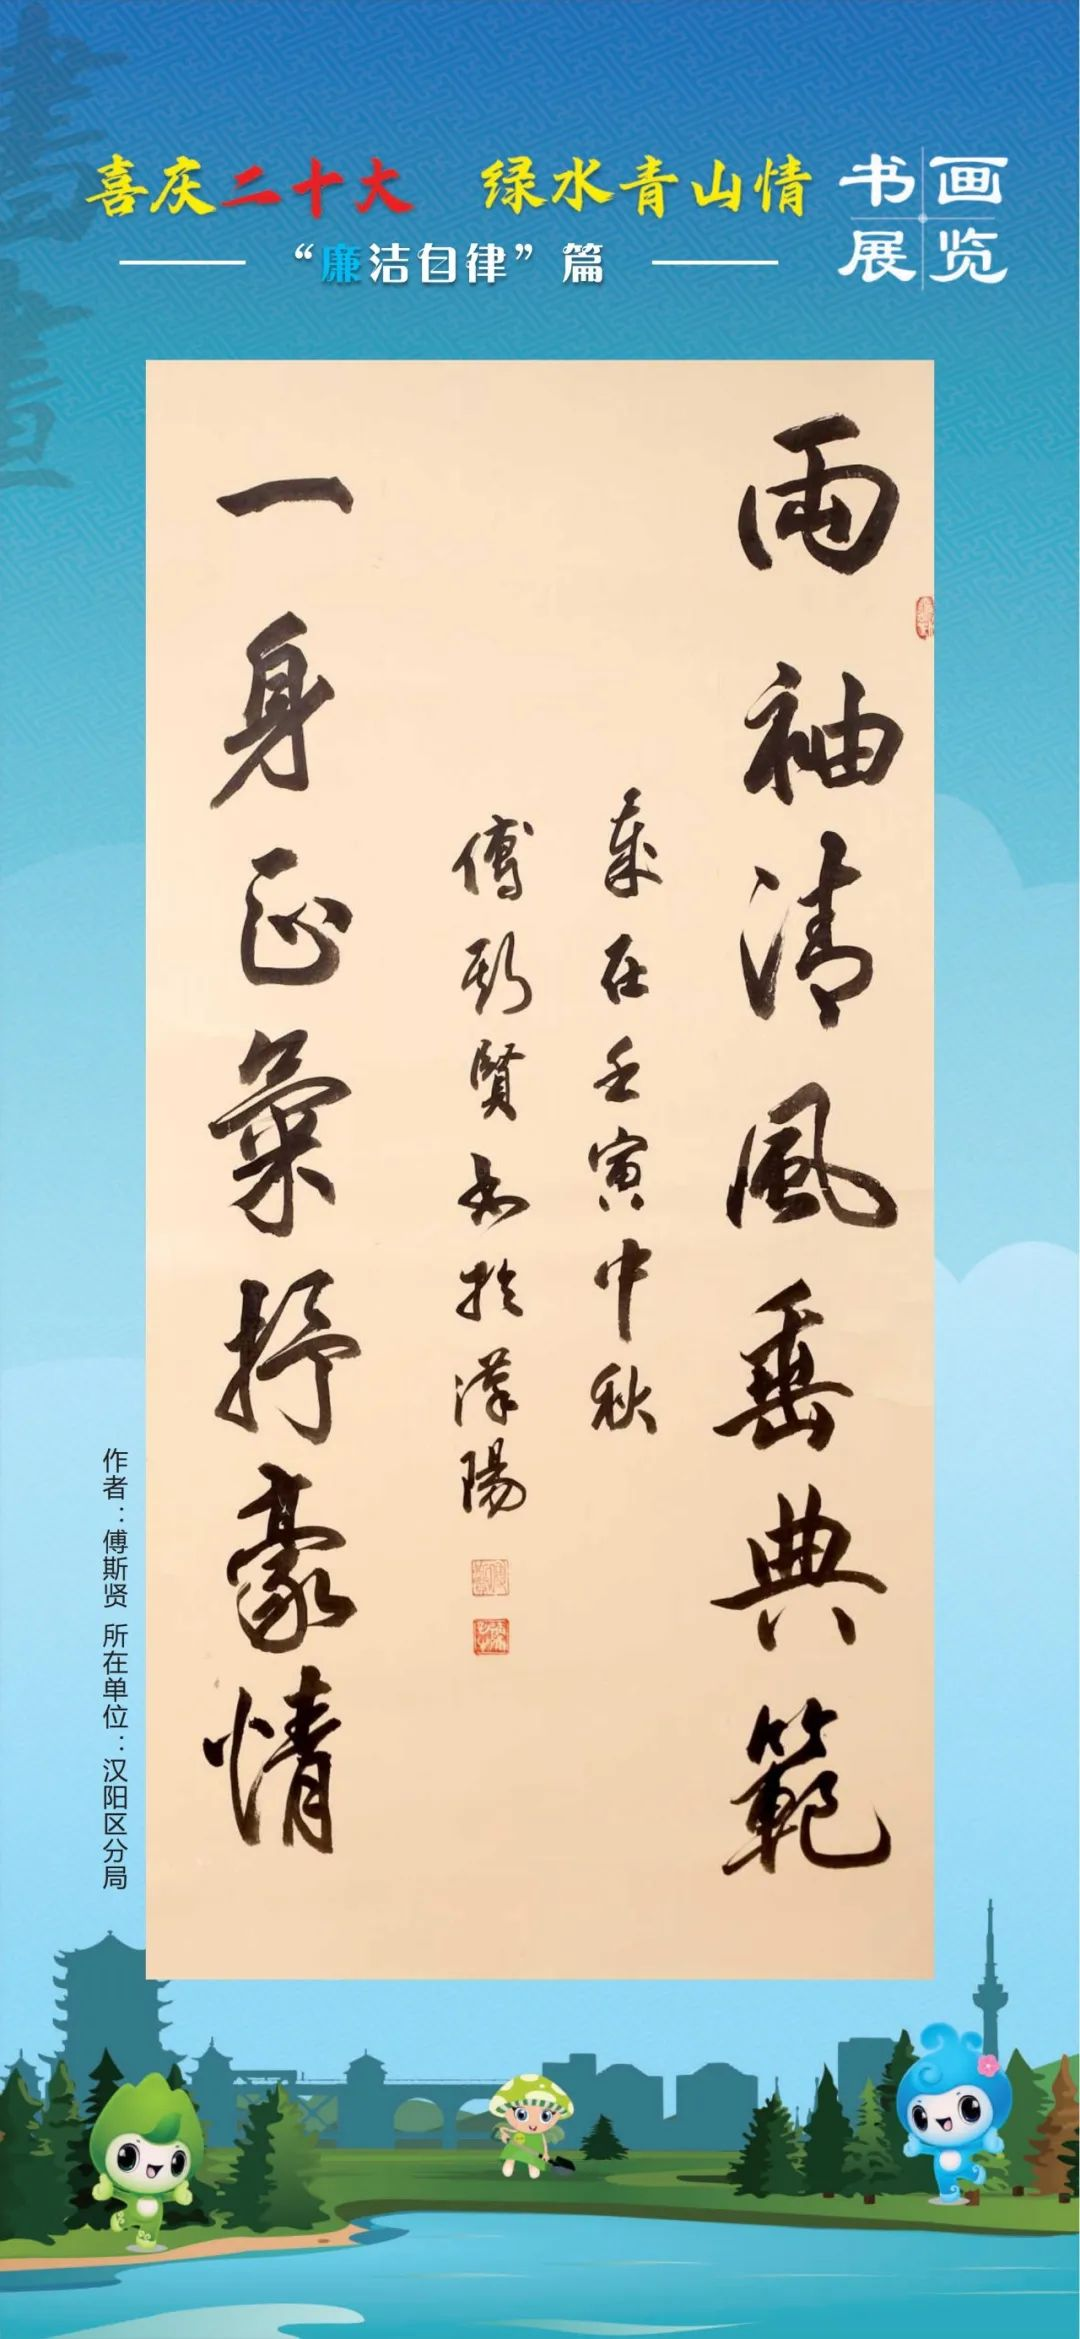 喜庆二十大 绿水青山情
“廉洁自律”篇
书画
展览
書畫
两袖清風垂典範
歲在壬寅中秋
傅斯賢书於漢陽
一身正氣抒豪情
作者：傅斯贤 所在单位：汉阳区分局